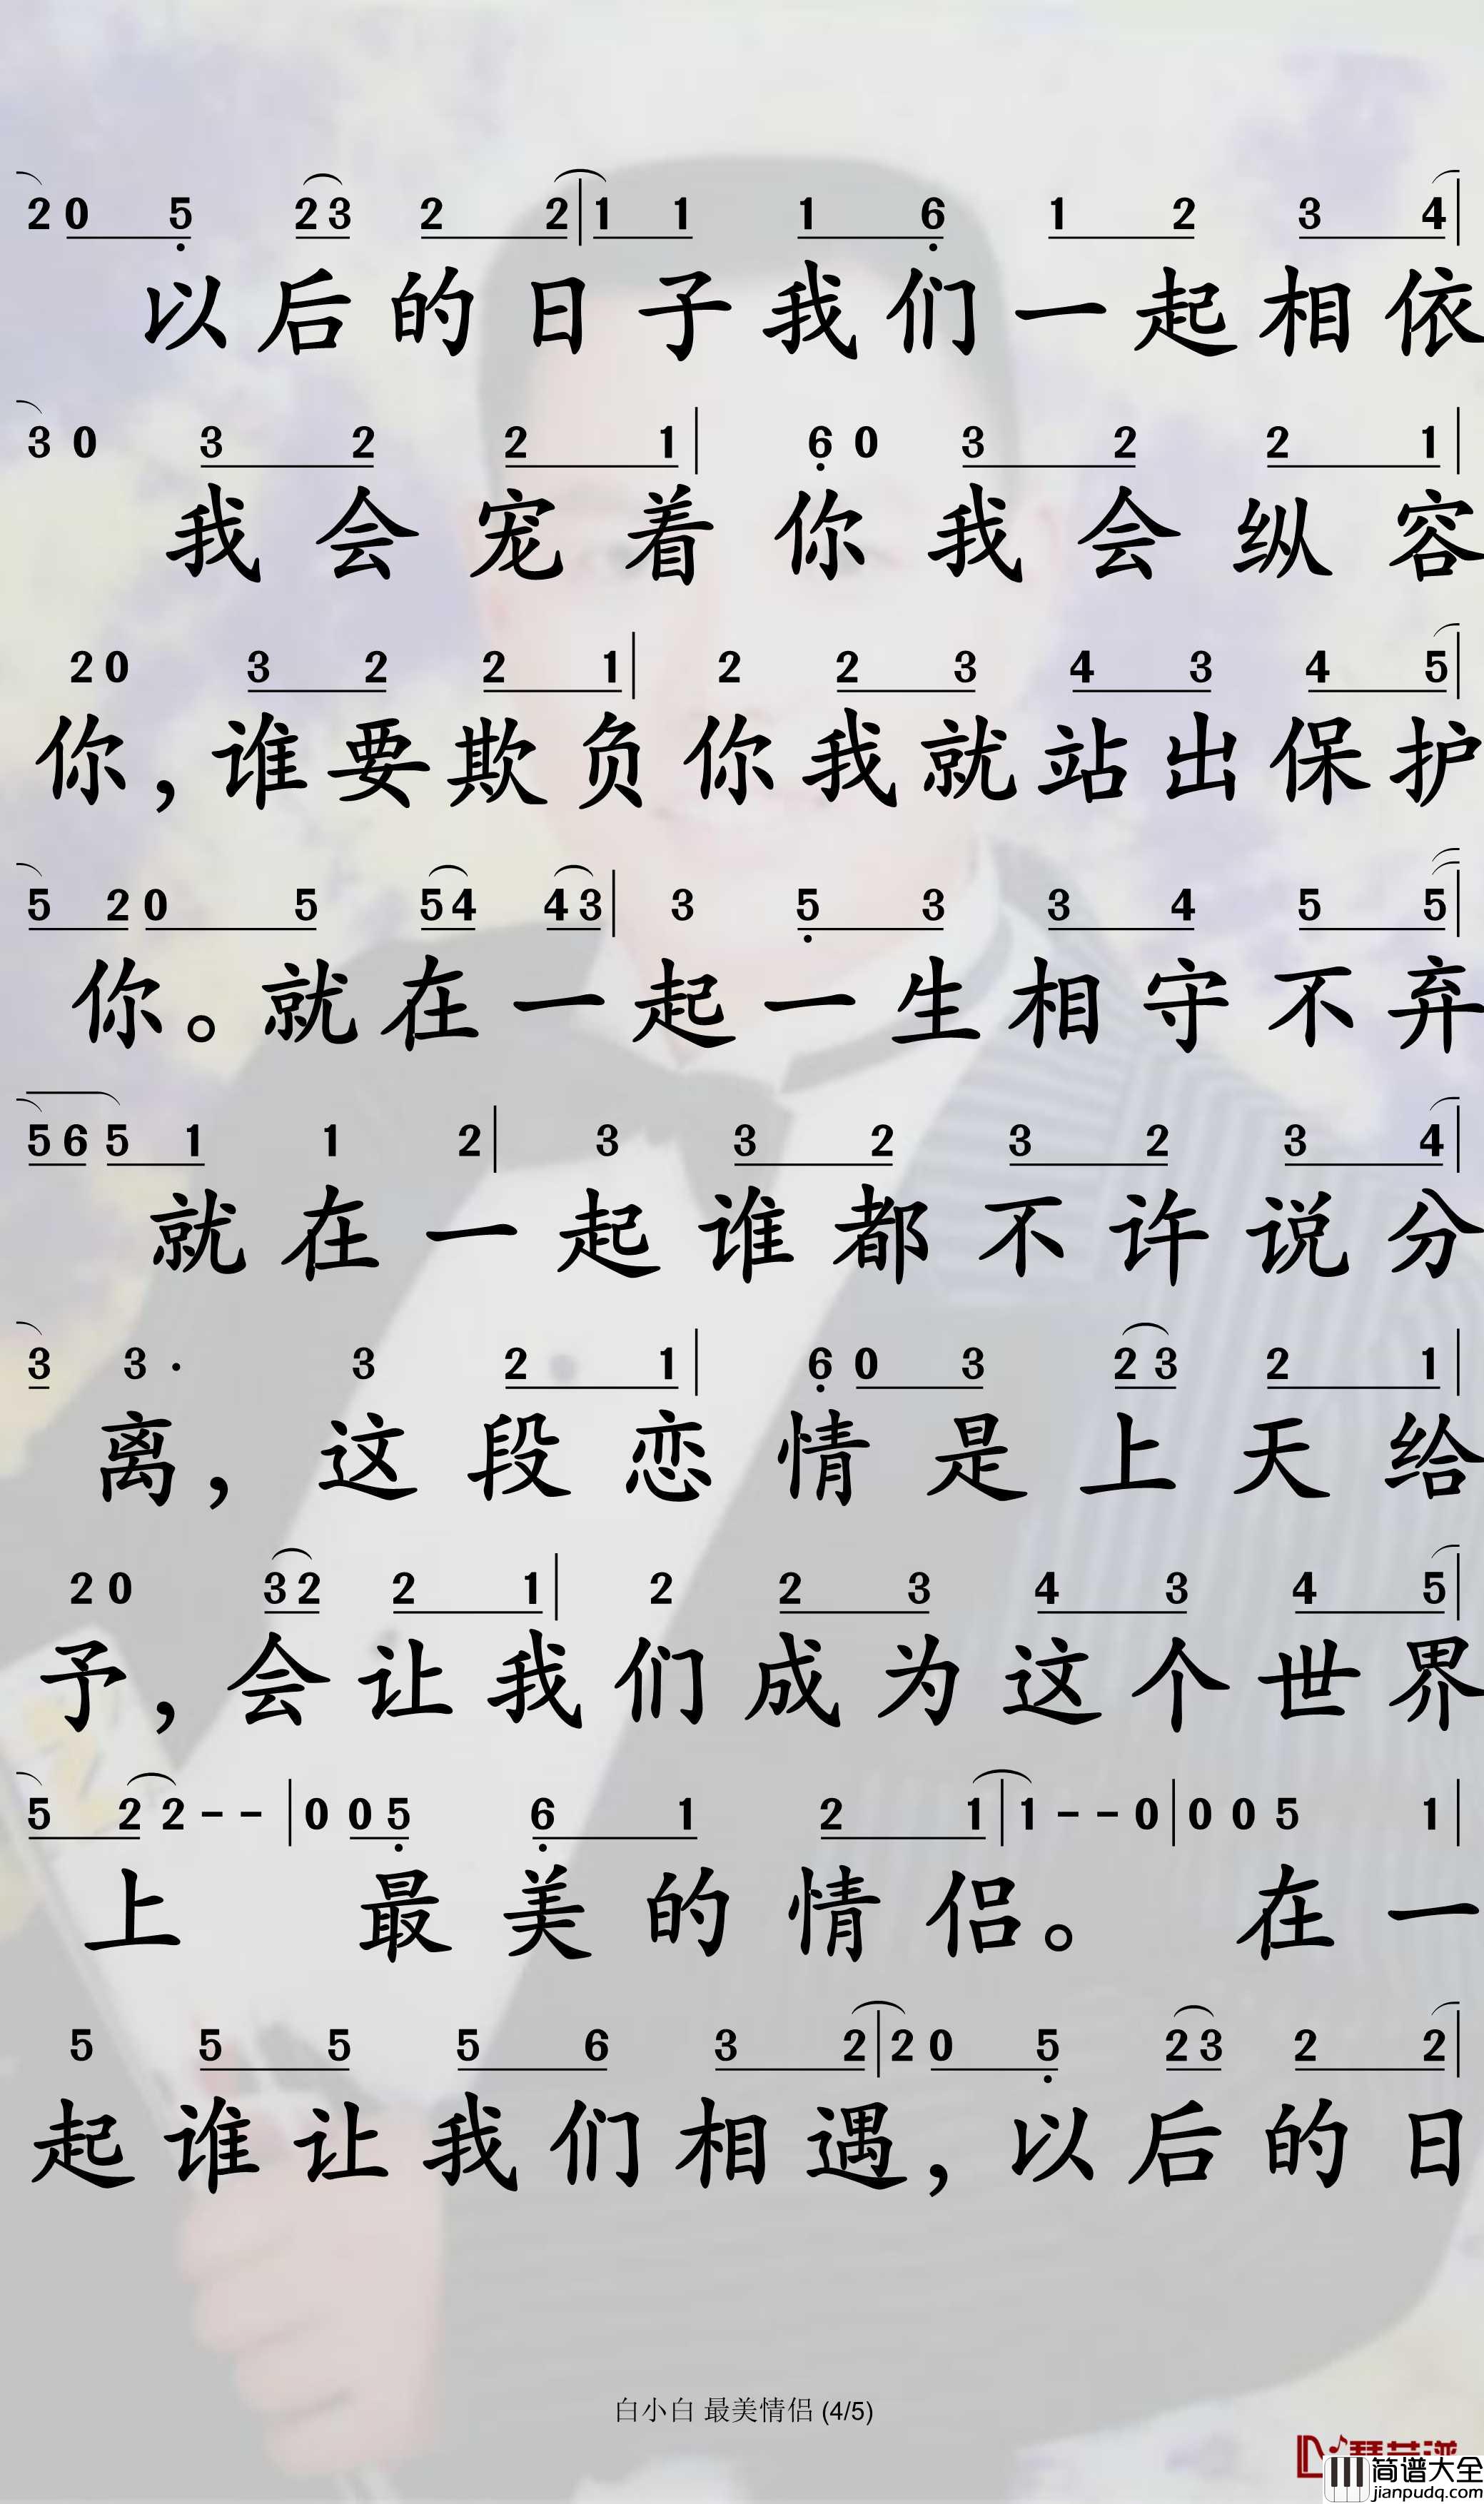 2 0 5 2 3 2 2 | 1 1 1 6 1 2 3 4 |
以后的日子我们一起相依
3 0 3 2 2 1 | 6 0 3 2 2 1 |
我会宠着你我会纵容
2 0 3 2 2 1 | 2 2 3 4 3 4 5 |
你,谁要欺负你我就站出保护
5 2 0 5 5 4 4 3 | 3 5 3 3 4 5 5 |
你。就在一起一生相守不弃
5 6 5 1 1 2 | 3 3 2 3 2 3 4 |
就在一起谁都不许说分
3 3 · 3 2 1 | 6 0 3 2 3 2 1 |
离,这段恋情是上天给
2 0 3 2 2 1 | 2 2 3 4 3 4 5 |
予,会让我们成为这个世界
5 2 2 - - | 0 0 5 6 1 2 1 | 1 - - 0 | 0 0 5 1 |
上 最美的情侣。 在一
5 5 5 5 6 3 2 | 2 0 5 2 3 2 2 |
起谁让我们相遇,以后的日
白小白 最美情侣 (4/5)
简谱大全
jianpudq.com